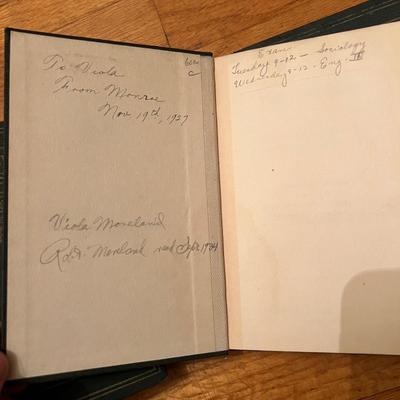 To Viola
From Monroe
Nov. 19th, 1927
Viola Moreland
Moreland read Sept 1924
Exam
Tuesday 9-12 - Sociology
Wednesday 9-12 - Eng. II